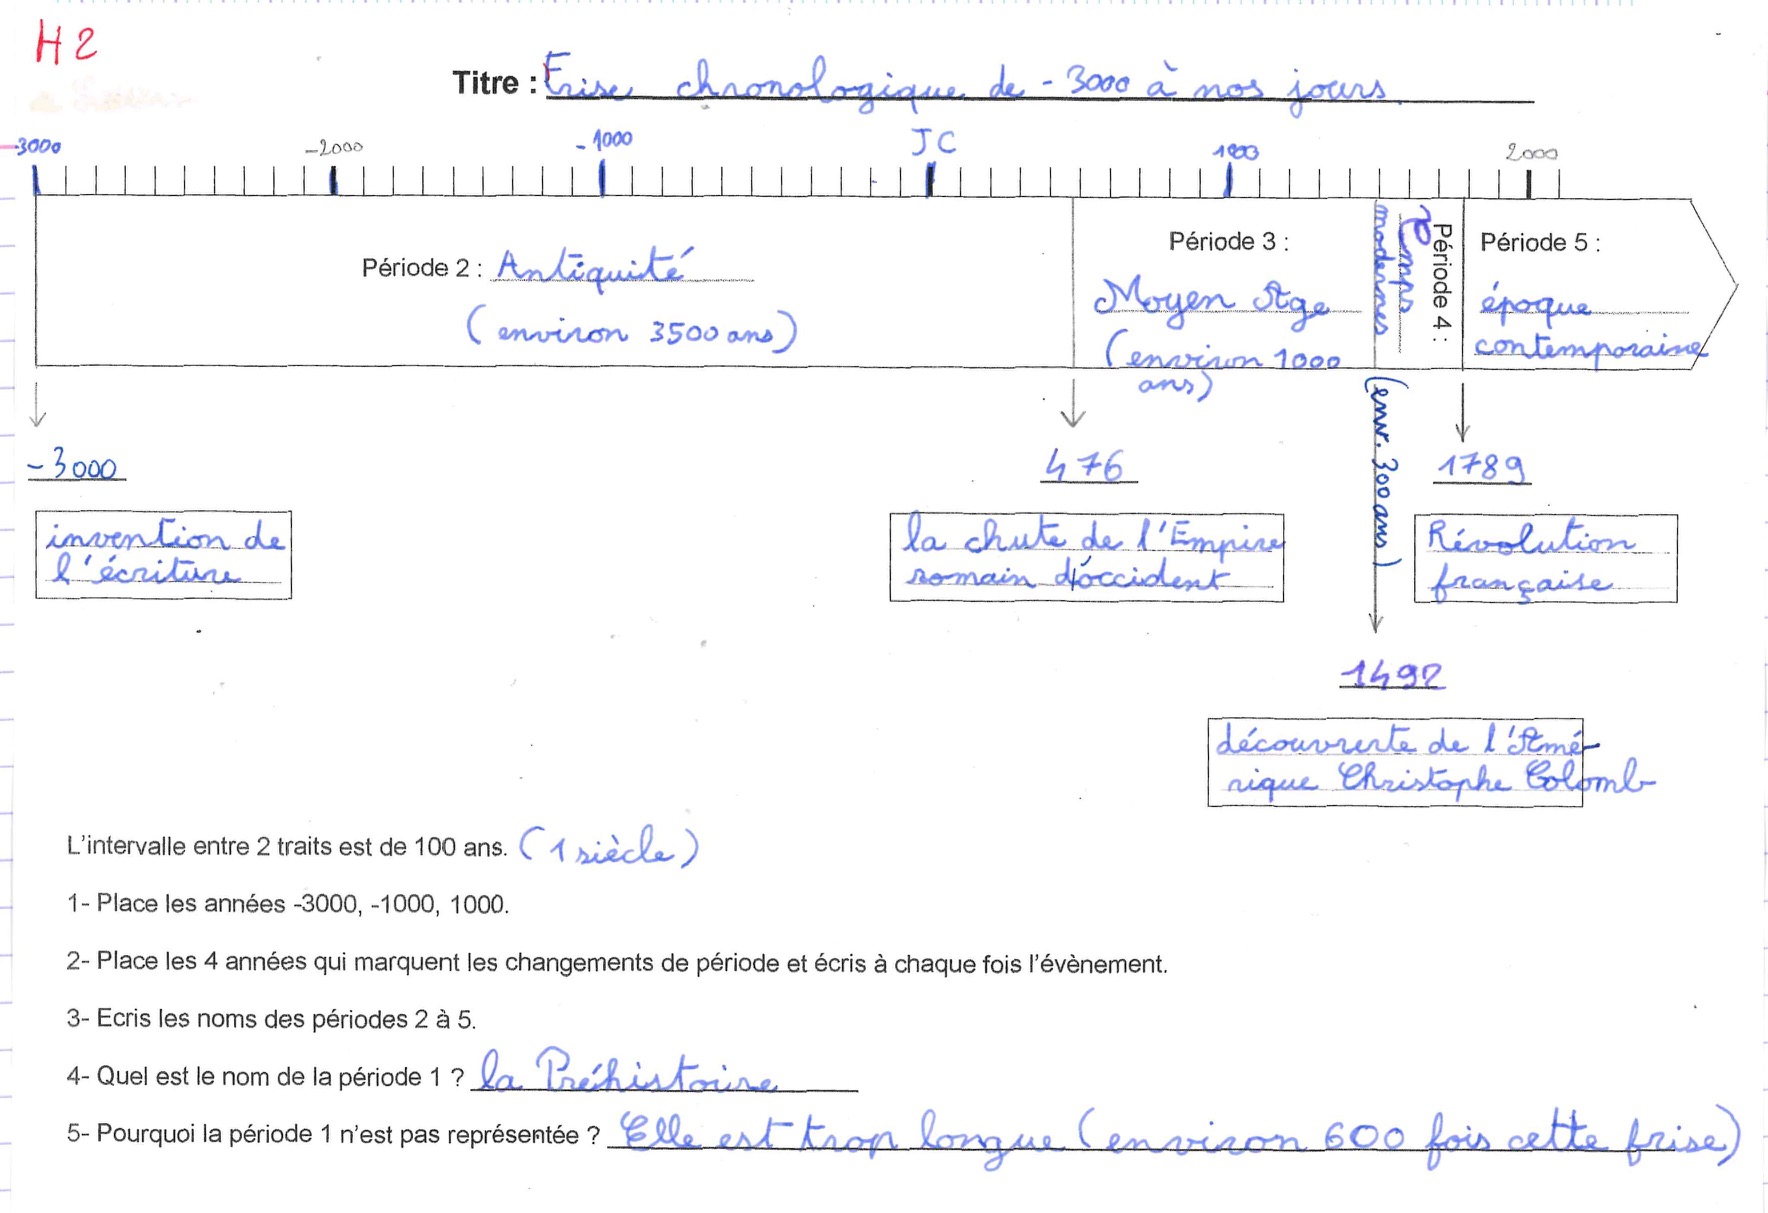 H2
Titre : Frise chronologique de -3000 à nos jours.
-3000 -2000 -1000 JC 1000 2000
Période 2 : Antiquité
(environ 3500 ans)
Période 3 :
Moyen Age
(environ 1000
ans)
Période 4 :
Temps
modernes
(env. 300 ans)
Période 5 :
époque
contemporaine
-3000
invention de
l'écriture
476
la chute de l'Empire
romain d'occident
1789
Révolution
française
1492
découverte de l'Amé-
rique Christophe Colomb
L'intervalle entre 2 traits est de 100 ans. (1 siècle)
1- Place les années -3000, -1000, 1000.
2- Place les 4 années qui marquent les changements de période et écris à chaque fois l'évènement.
3- Ecris les noms des périodes 2 à 5.
4- Quel est le nom de la période 1 ? la Préhistoire
5- Pourquoi la période 1 n'est pas représentée ? Elle est trop longue (environ 600 fois cette frise)